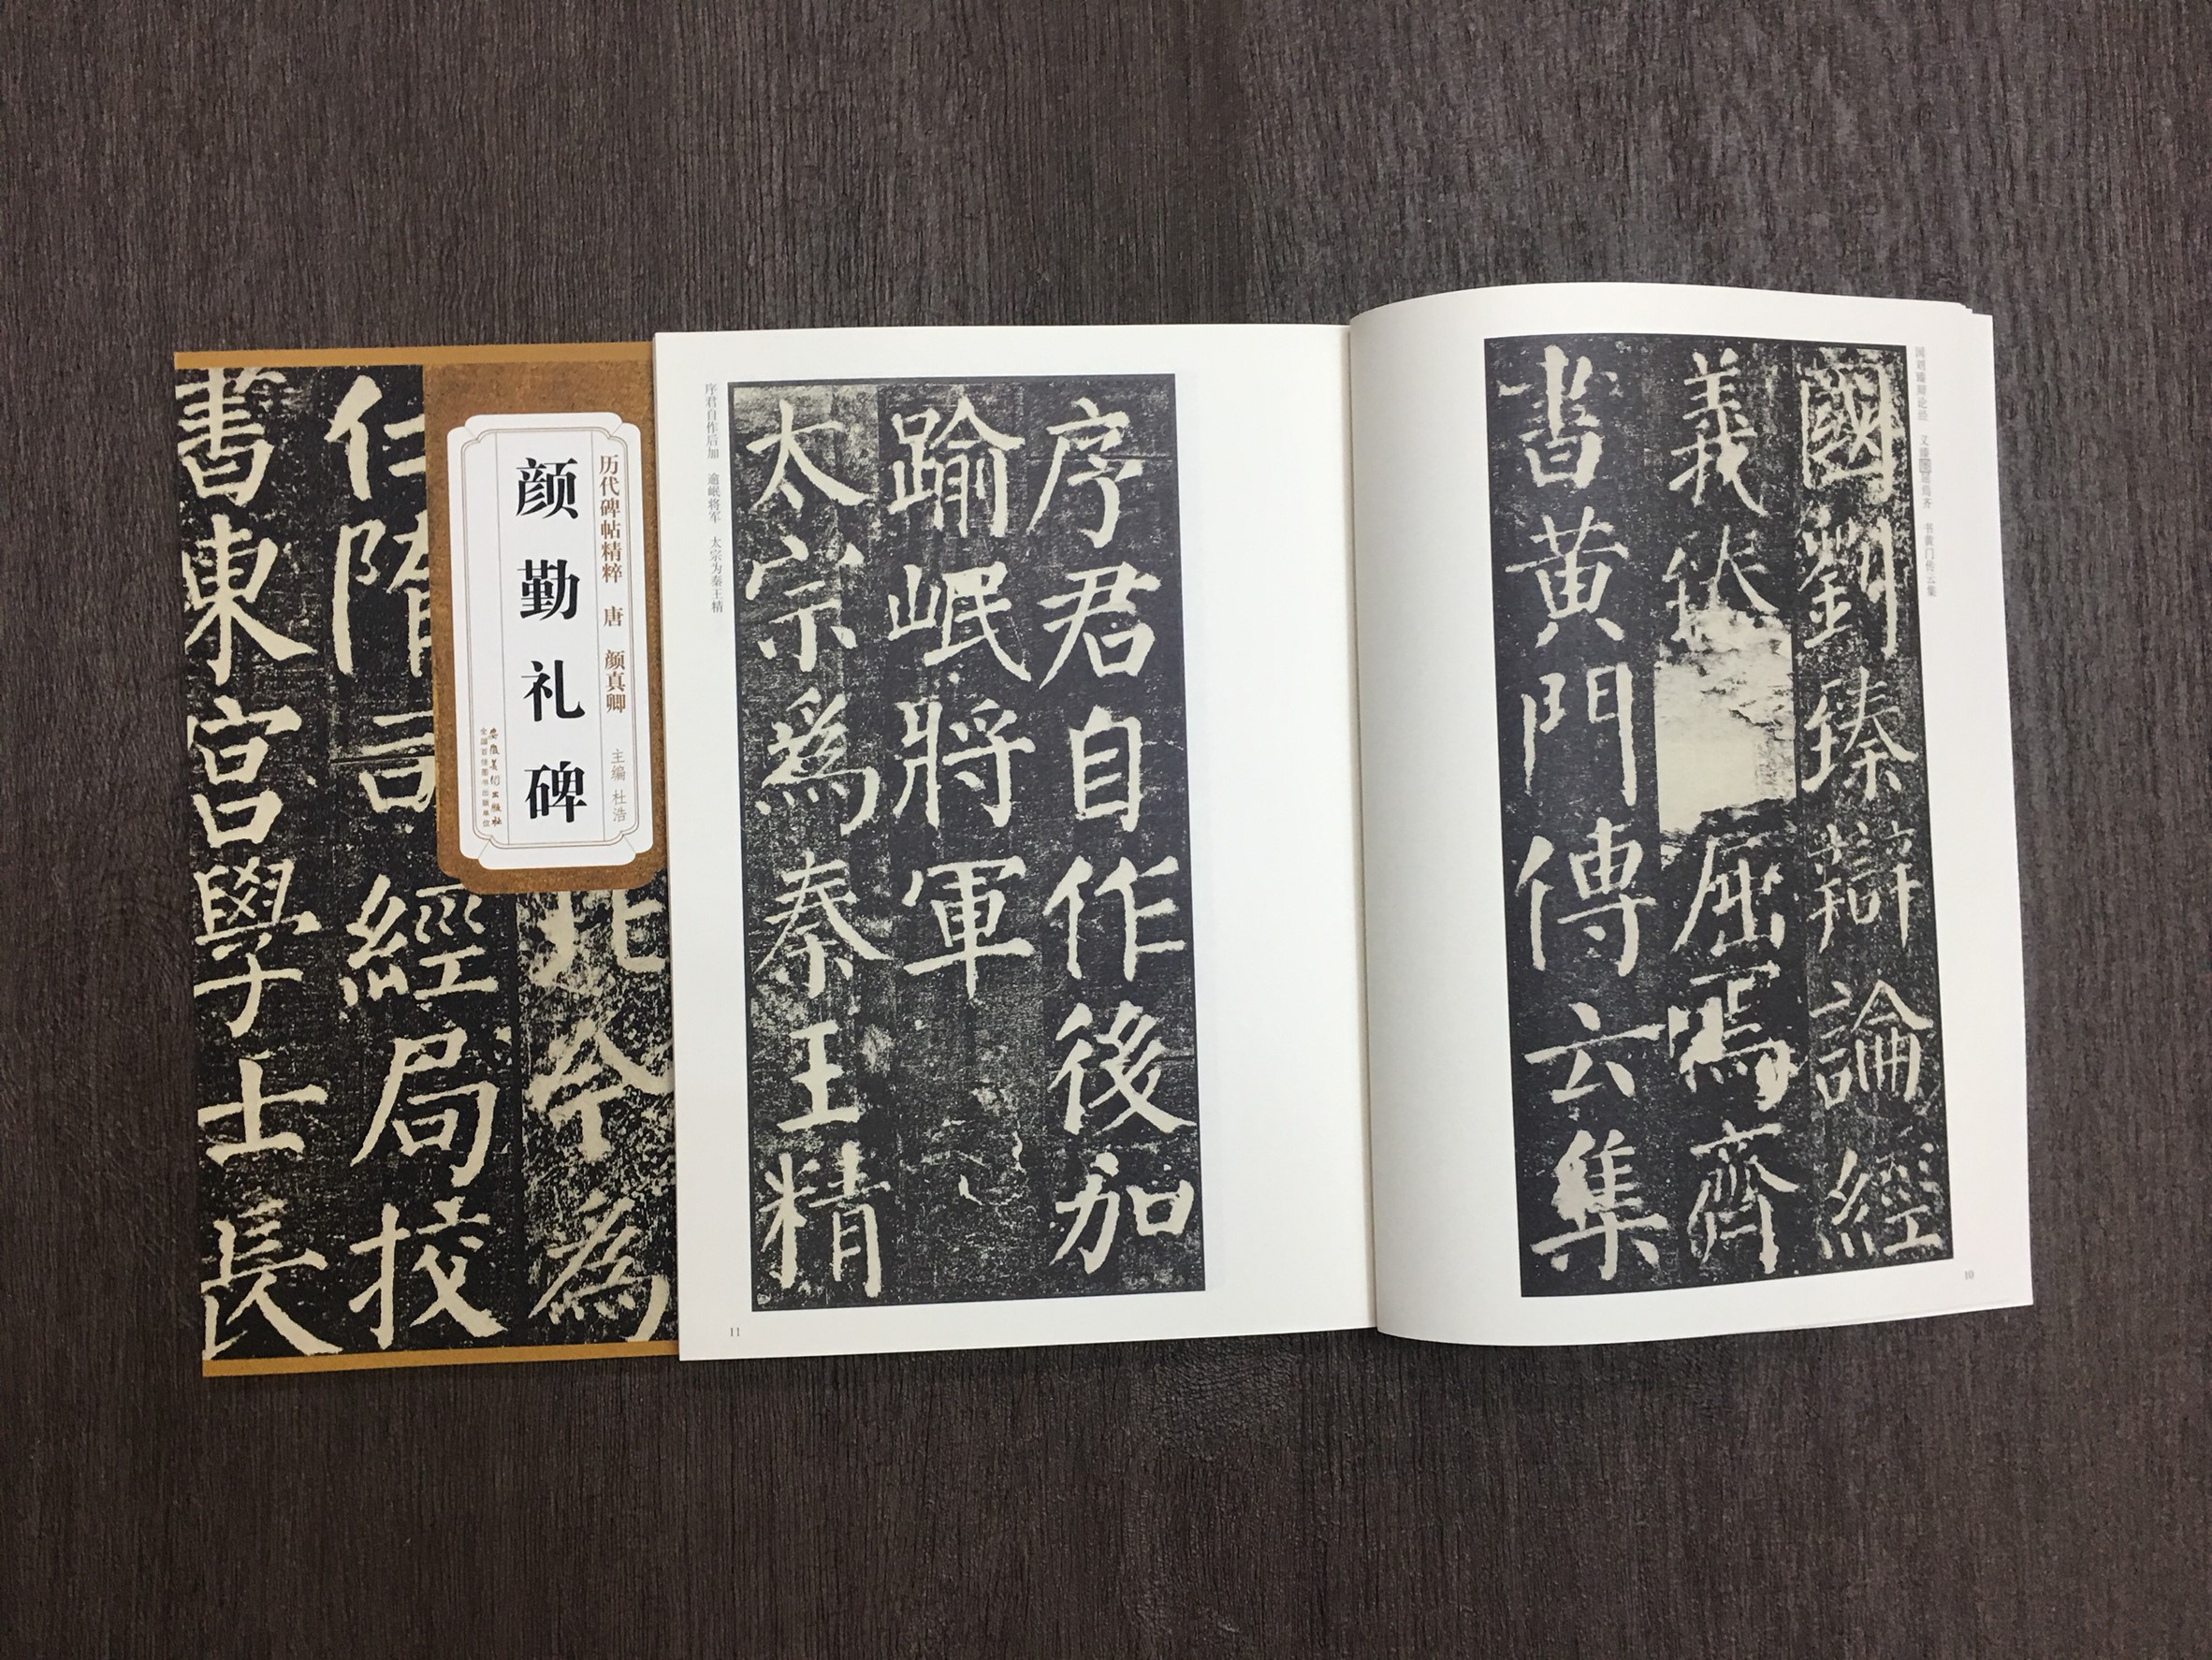 历代碑帖精粹 唐 颜真卿
主编 杜浩
颜勤礼碑
安徽美术出版社
全国百佳图书出版单位
今為
仁隋
經局校
書東宮學士長
國劉臻辯論經
義
屈焉齊
書黃門傳云集
10
序君自作後加
踰岷將軍
太宗為秦王精
序君自作后加 逾岷将军 太宗为秦王精
11